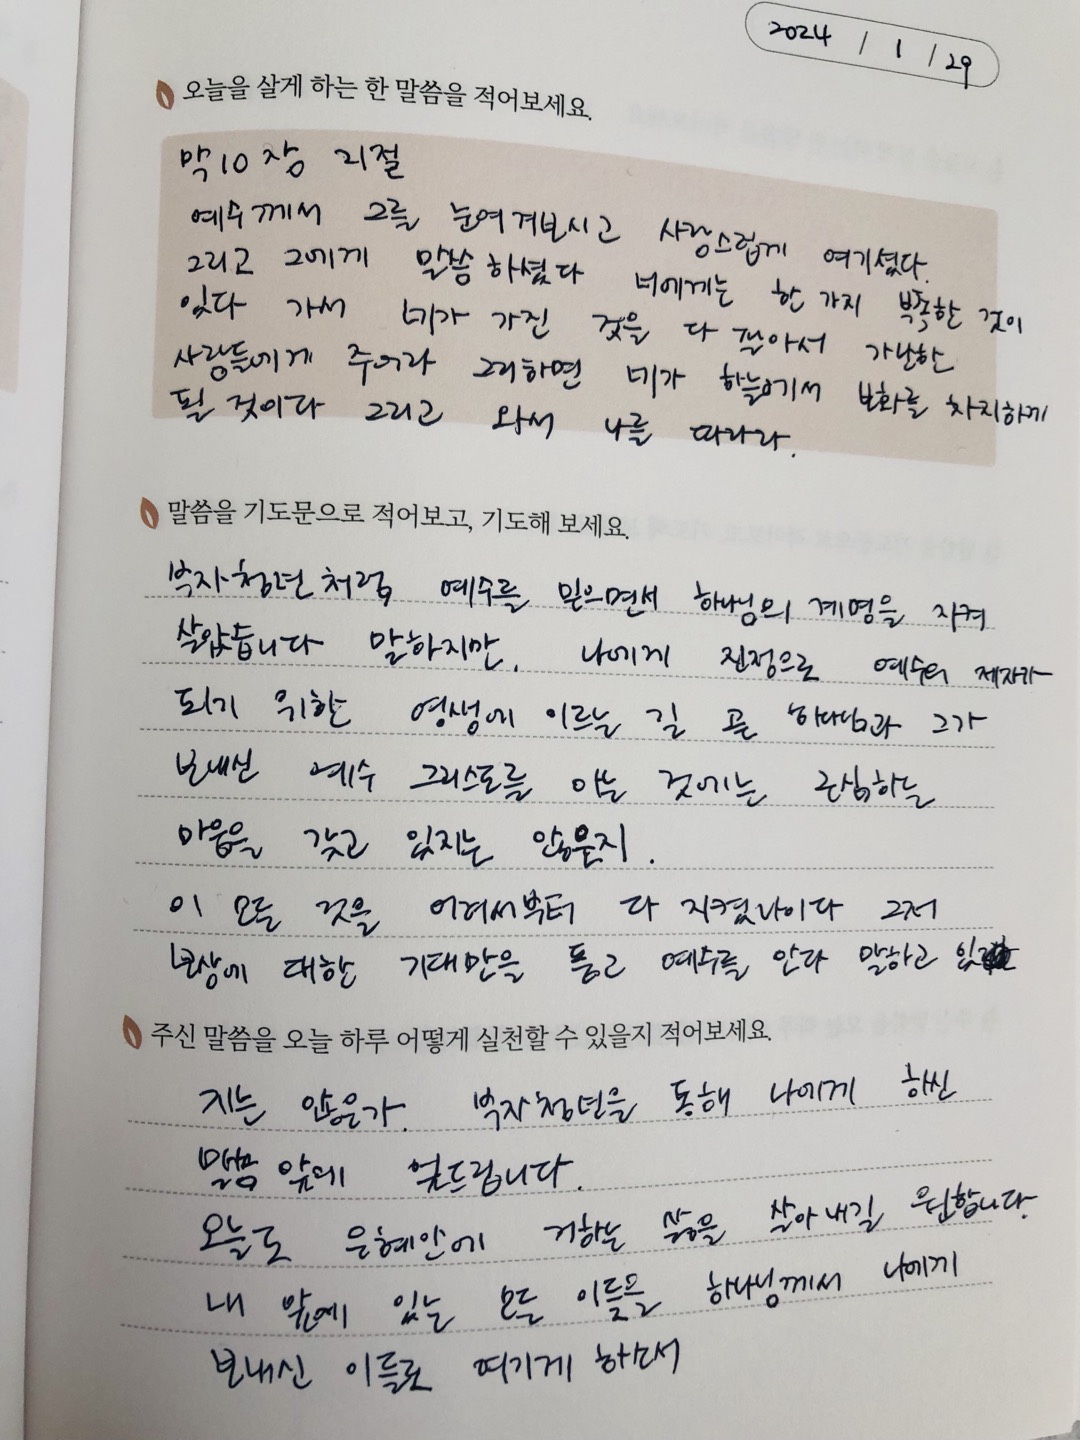 2024 / 1 / 29
오늘을 살게 하는 한 말씀을 적어보세요.
막10장 21절
예수께서 그를 눈여겨보시고 사랑스럽게 여기셨다.
그리고 그에게 말씀하셨다 너에게는 한 가지 부족한 것이
있다 가서 네가 가진 것을 다 팔아서 가난한
사람들에게 주어라 그리하면 네가 하늘에서 보화를 차지하게
될 것이다 그리고 와서 나를 따라라.
말씀을 기도문으로 적어보고, 기도해 보세요.
부자청년처럼 예수를 믿으면서 하나님의 계명을 지켜
살았습니다 말하지만, 나에게 진정으로 예수의 제자가
되기 위한 영생에 이르는 길 곧 하나님과 그가
보내신 예수 그리스도를 아는 것에는 근심하는
마음을 갖고 있지는 않은지.
이 모든 것을 어려서부터 다 지켰나이다 그저
보상에 대한 기대만을 품고 예수를 안다 말하고 있
주신 말씀을 오늘 하루 어떻게 실천할 수 있을지 적어보세요.
지는 않은가. 부자청년을 통해 나에게 하신
말씀 앞에 엎드립니다.
오늘도 은혜안에 거하는 삶을 살아내길 원합니다.
내 앞에 있는 모든 이들을 하나님께서 나에게
보내신 이들로 여기게 하소서